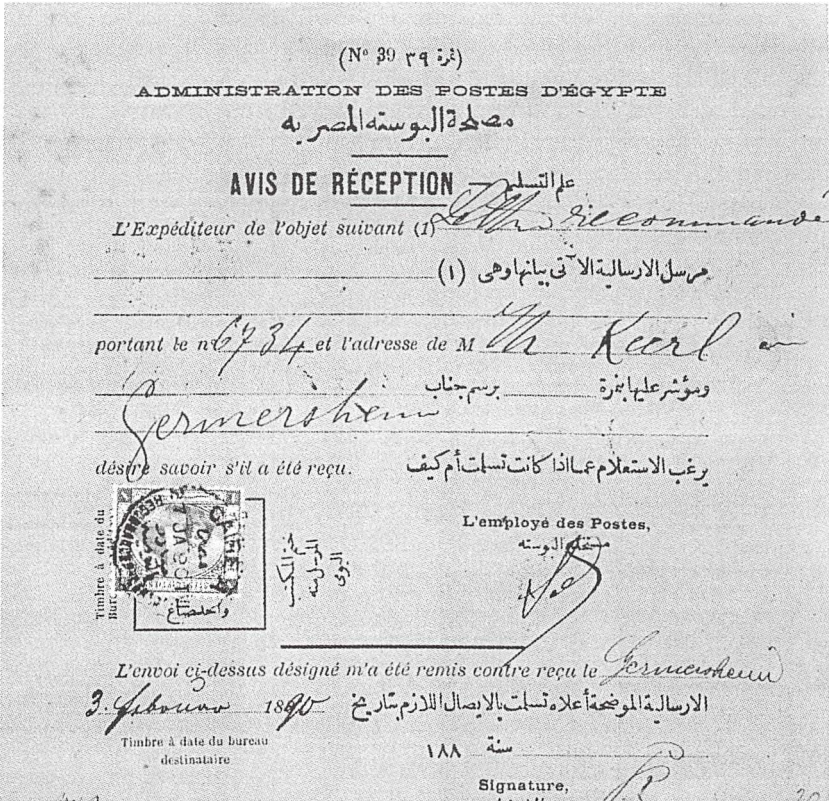 (Nº 39 نمرة ٣٩)
ADMINISTRATION DES POSTES D'ÉGYPTE
مصلحة البوسته المصريه
AVIS DE RÉCEPTION — علم التسليم
L'Expéditeur de l'objet suivant (1) recommandé
مرسل الارسالية الآتى بيانها وهى (١)
portant le nº 6734 et l'adresse de M Th Keerl
ومؤشر عليها بنمرة برسم جناب
Germersheim
désire savoir s'il a été reçu. يرغب الاستعلام عما اذا كانت تسلمت أم كيف
L'employé des Postes,
Timbre à date du
واحد صاغ
L'envoi ci-dessus désigné m'a été remis contre reçu le Germersheim
3. februar 1890 الارسالية الموضحة أعلاه تسلمت بالايصال اللازم بتاريخ
سنة ١٨٨
Timbre à date du bureau
destinataire
Signature,